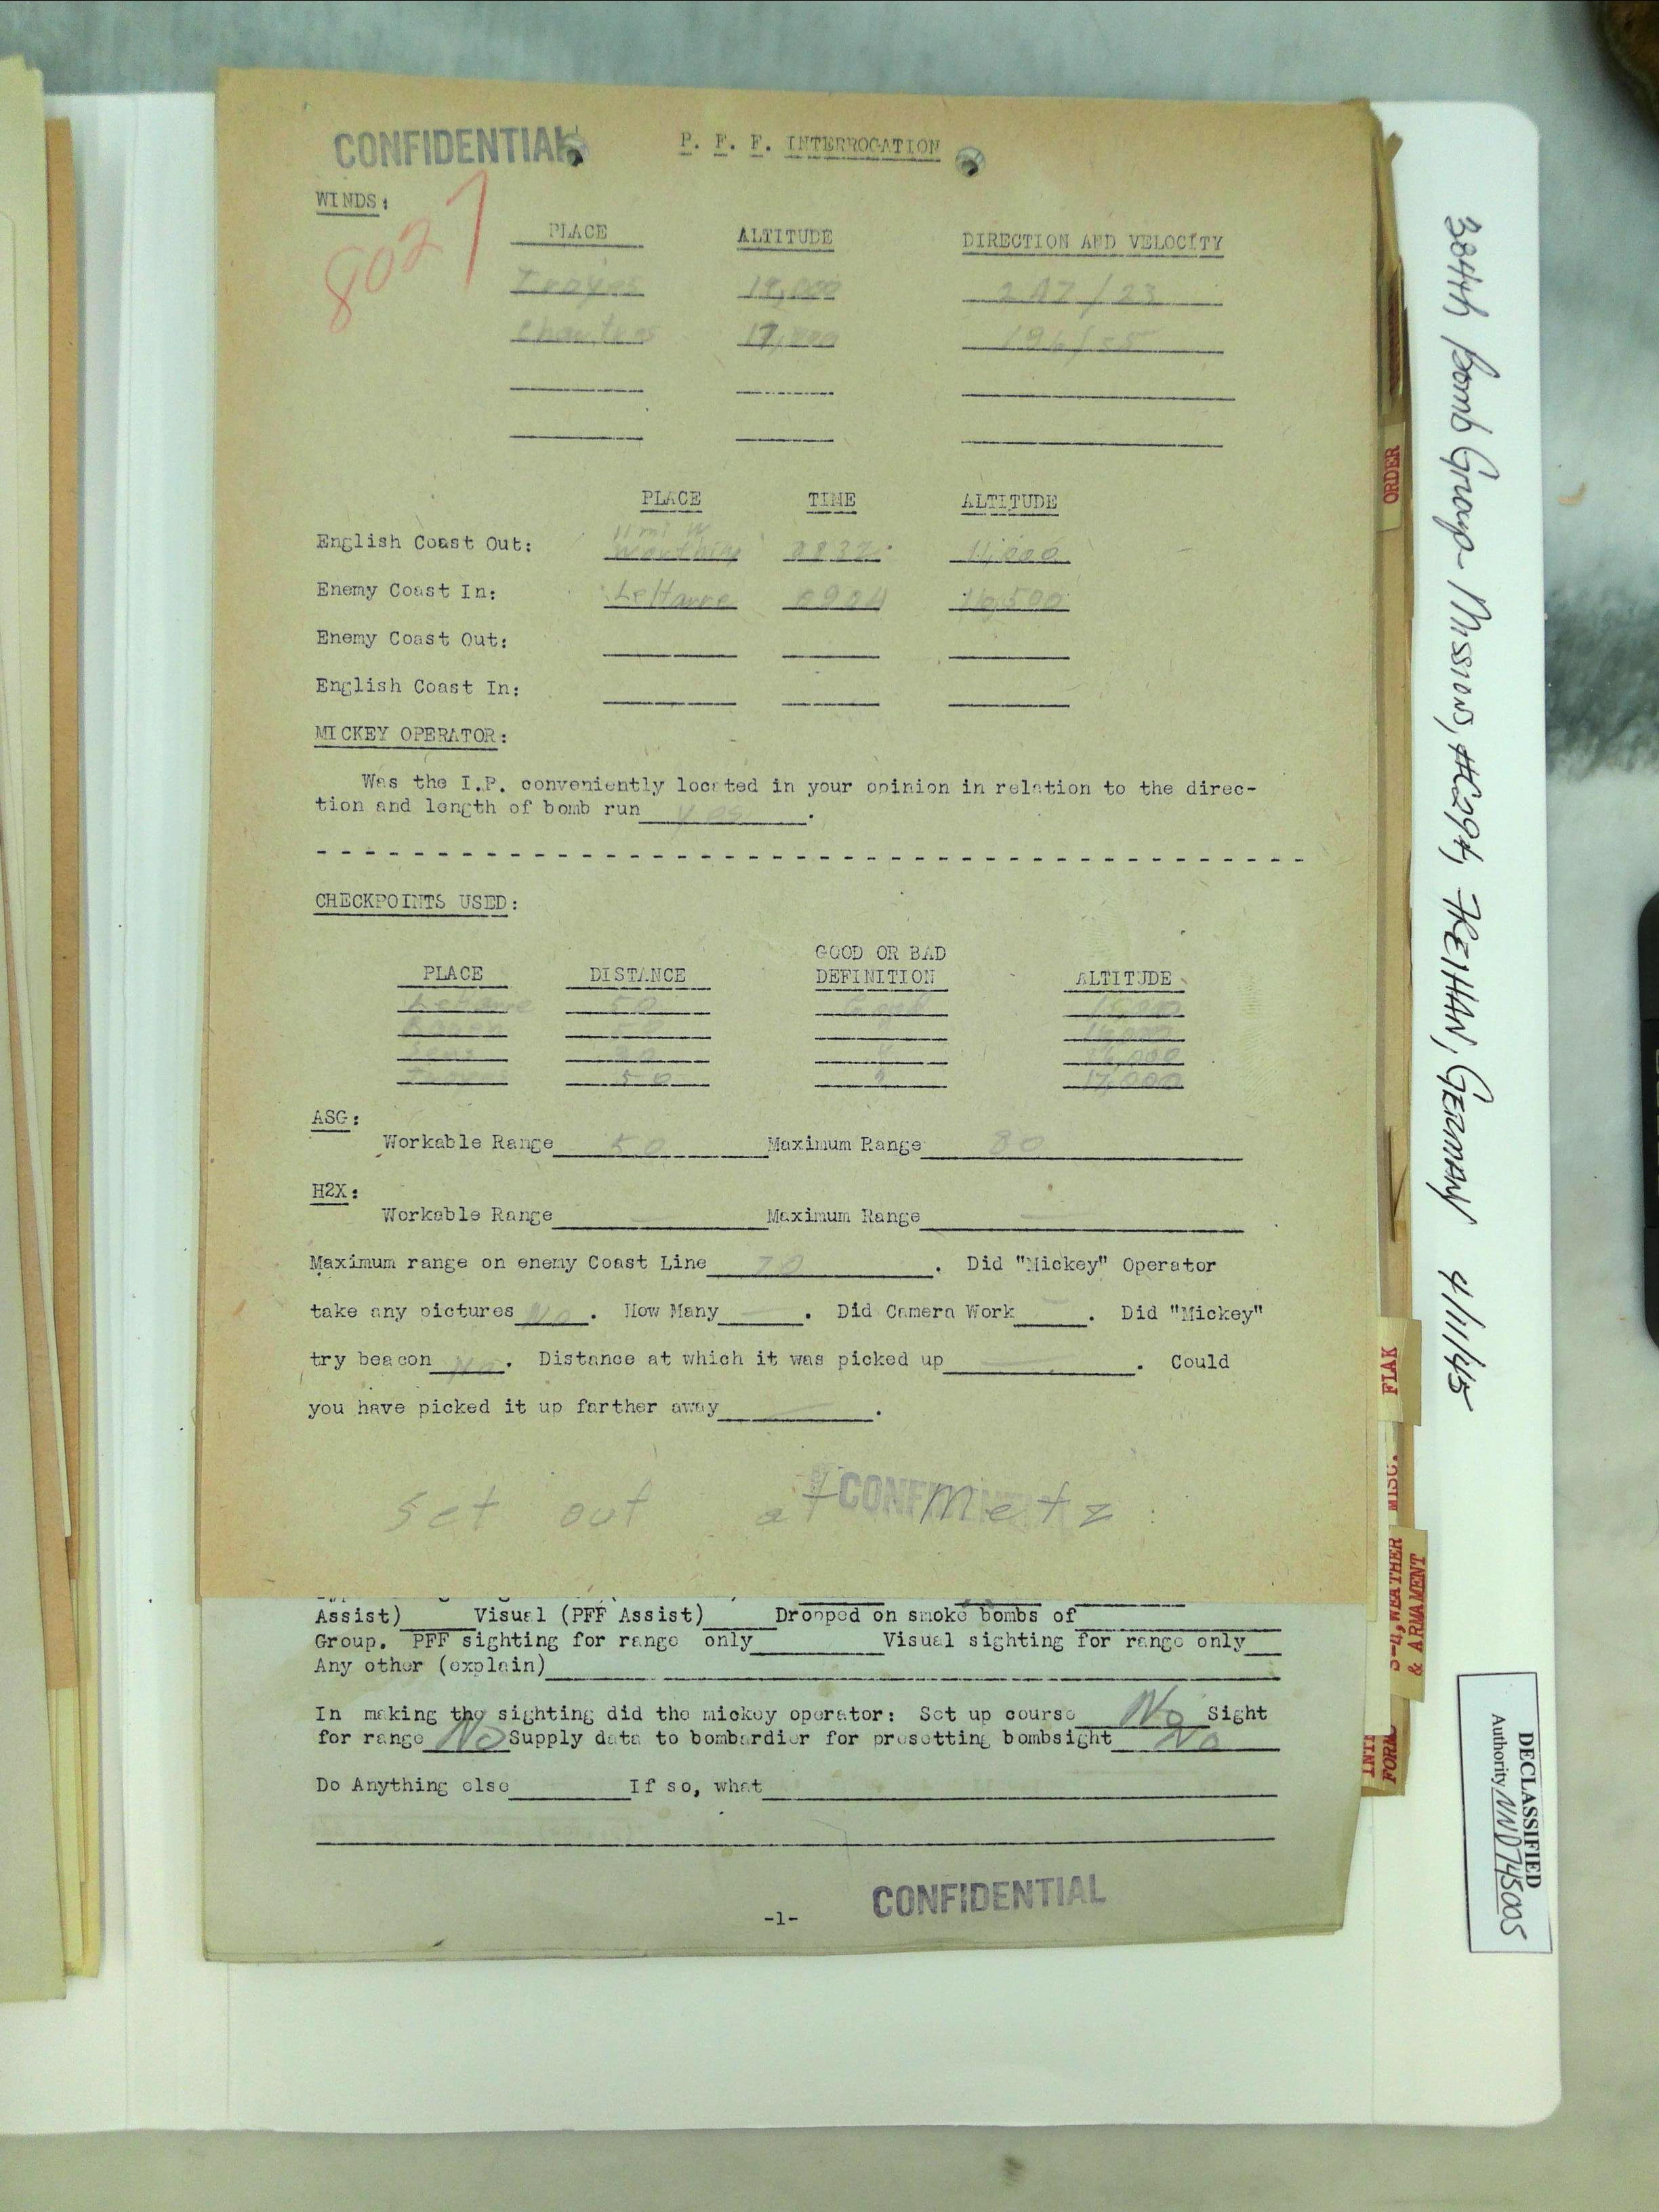 CONFIDENTIAL
P. F. F. INTERROGATION
8027
WINDS:
PLACE ALTITUDE DIRECTION AND VELOCITY
Troyes 18,000 247/23
Chartres 17,000
PLACE TIME ALTITUDE
11 mi W
English Coast Out: Worthing 0832 11,000
Enemy Coast In: LeHavre 0904 16,500
Enemy Coast Out:
English Coast In:
MICKEY OPERATOR:
Was the I.P. conveniently located in your opinion in relation to the direc-
tion and length of bomb run yes.
CHECKPOINTS USED:
GOOD OR BAD
PLACE DISTANCE DEFINITION ALTITUDE
LeHavre 50 Good
Rouen 50 " 16,000
Sens " 16,000
Troyes 50 " 17,000
ASG:
Workable Range 50 Maximum Range 80
H2X:
Workable Range — Maximum Range —
Maximum range on enemy Coast Line 70. Did "Mickey" Operator
take any pictures No. How Many —. Did Camera Work —. Did "Mickey"
try beacon No. Distance at which it was picked up —. Could
you have picked it up farther away —.
CONFIDENTIAL
Set out at Metz.
Assist) Visual (PFF Assist) Dropped on smoke bombs of
Group. PFF sighting for range only Visual sighting for range only
Any other (explain)
In making the sighting did the mickey operator: Set up course No Sight
for range No Supply data to bombardier for presetting bombsight No
Do Anything else If so, what
CONFIDENTIAL
-1-
ORDER
FLAK
MISC.
S-4, WEATHER
& ARMAMENT
FORM
384th Bomb Group - Missions, #294, FREIHAN, GERMANY 4/11/45
DECLASSIFIED
Authority NND745005